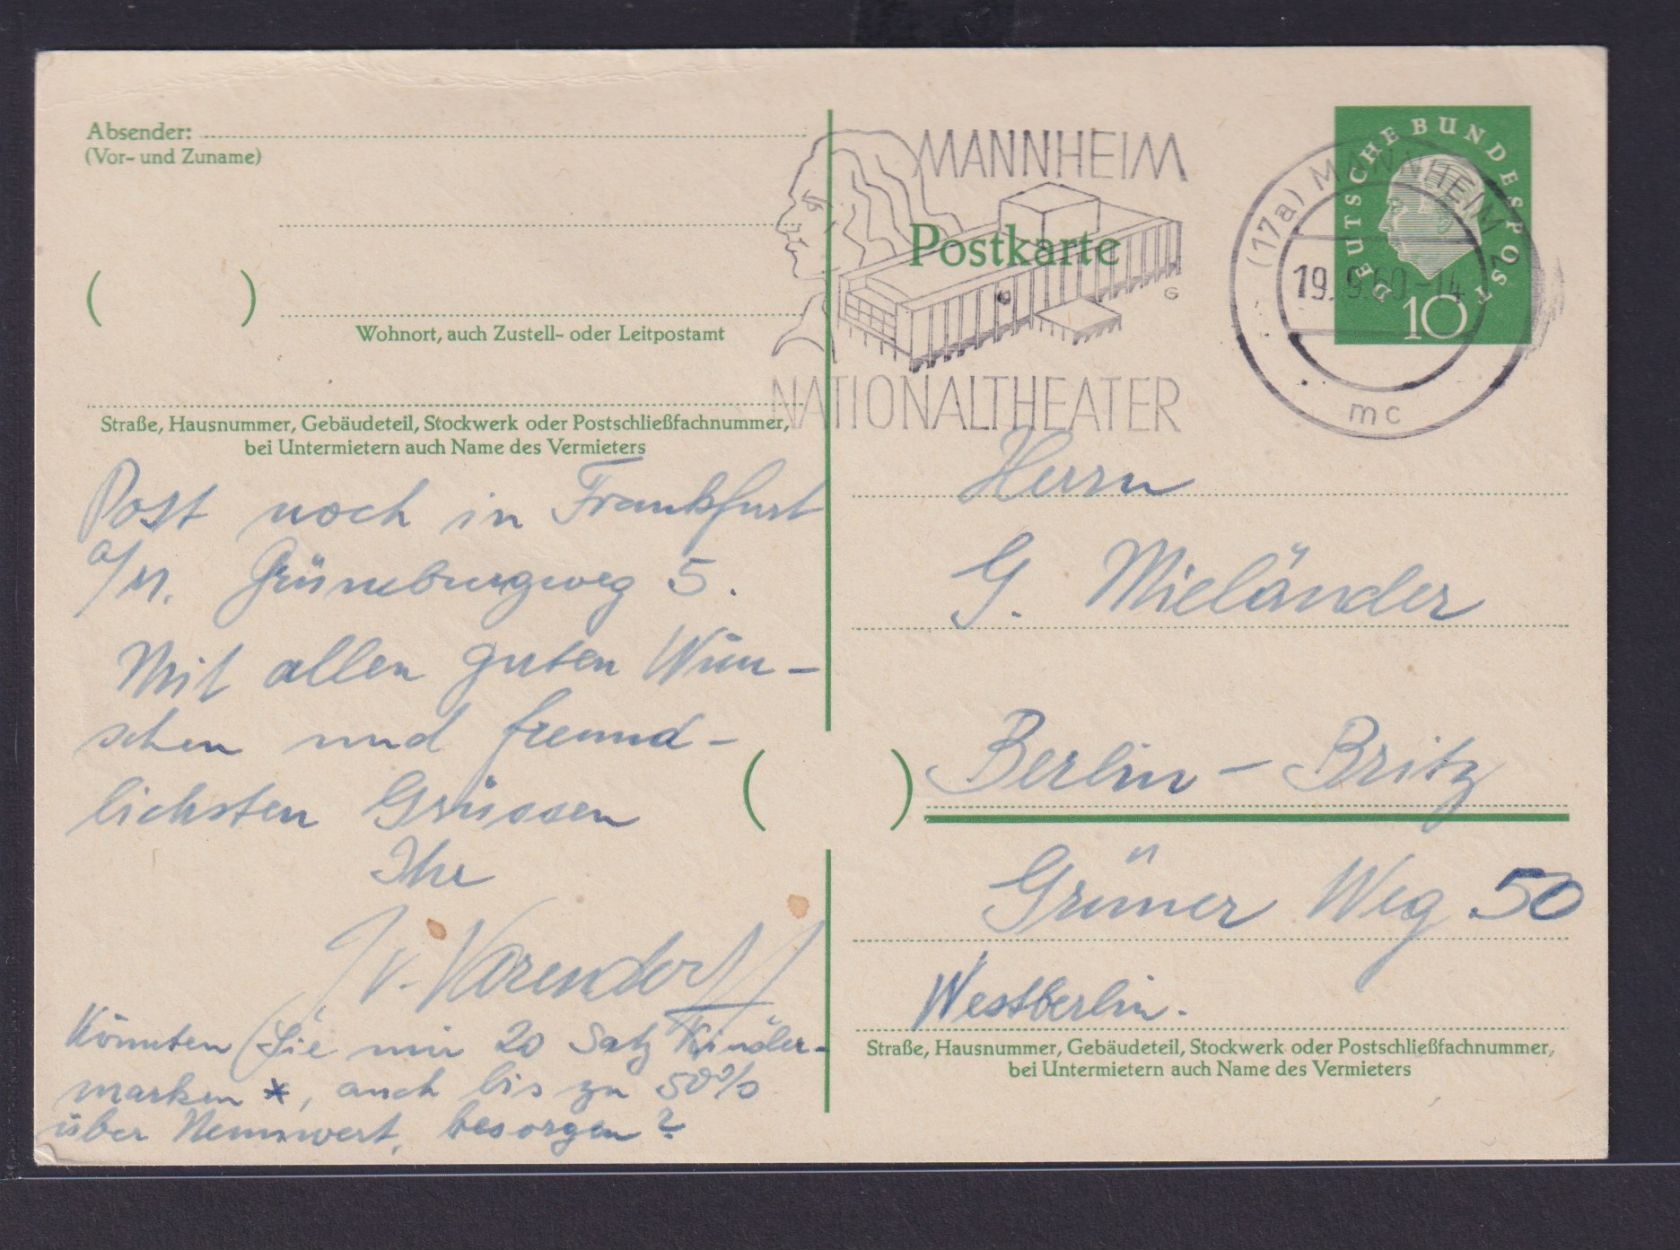 Absender:
(Vor- und Zuname)
Wohnort, auch Zustell- oder Leitpostamt
Straße, Hausnummer, Gebäudeteil, Stockwerk oder Postschließfachnummer,
bei Untermietern auch Name des Vermieters
Post noch in Frankfurt
a/M. Grüneburgweg 5.
Mit allen guten Wün-
schen und freund-
lichsten Grüssen
Ihr
v. Varendorff
Könnten Sie mir 20 Satz Kinder-
marken *, auch bis zu 50%
über Nennwert, besorgen?
MANNHEIM
Postkarte
G
NATIONALTHEATER
DEUTSCHE BUNDESPOST
10
(17a) MANNHEIM 2
19.9.60-14
mc
Herrn
G. Mieländer
Berlin - Britz
Grüner Weg 50
Westberlin.
Straße, Hausnummer, Gebäudeteil, Stockwerk oder Postschließfachnummer,
bei Untermietern auch Name des Vermieters